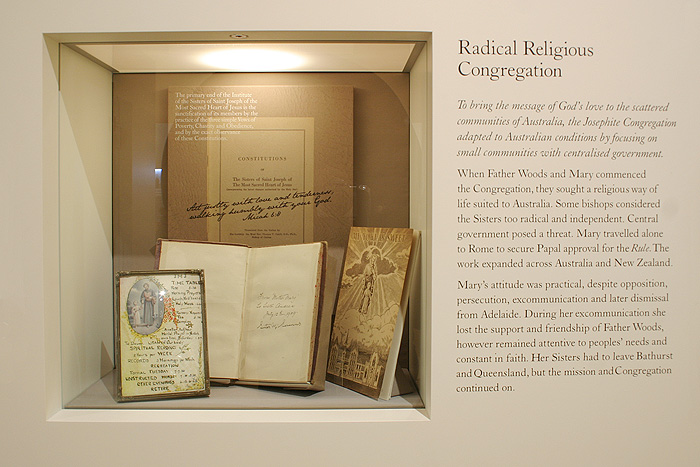 Radical Religious
Congregation
To bring the message of God's love to the scattered
communities of Australia, the Josephite Congregation
adapted to Australian conditions by focusing on
small communities with centralised government.
When Father Woods and Mary commenced
the Congregation, they sought a religious way of
life suited to Australia. Some bishops considered
the Sisters too radical and independent. Central
government posed a threat. Mary travelled alone
to Rome to secure Papal approval for the Rule. The
work expanded across Australia and New Zealand.
Mary's attitude was practical, despite opposition,
persecution, excommunication and later dismissal
from Adelaide. During her excommunication she
lost the support and friendship of Father Woods,
however remained attentive to peoples' needs and
constant in faith. Her Sisters had to leave Bathurst
and Queensland, but the mission and Congregation
continued on.
The primary end of the Institute
of the Sisters of Saint Joseph of the
Most Sacred Heart of Jesus is the
sanctification of its members by the
practice of the three simple Vows of
Poverty, Chastity and Obedience,
and by the exact observance
of these Constitutions.
CONSTITUTIONS
OF
The Sisters of Saint Joseph of
The Most Sacred Heart of Jesus
Act justly with love and tenderness,
walking humbly with your God.
Micah 6:8
TIME TABLE
SPIRITUAL READING
WEEK
RECREATION
RETIRE